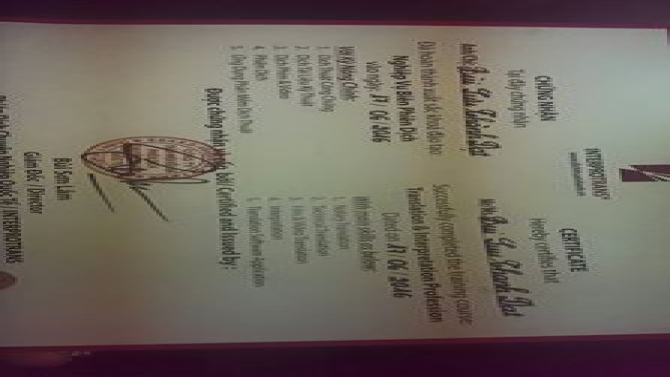 INTERPROTRANS
CHỨNG NHẬN
Tại đây chứng nhận
Anh/Chị:
Đã hoàn thành xuất sắc khoá đào tạo:
Nghiệp Vụ Biên Phiên Dịch
Vào ngày: 17/ 06/ 2016
Với Kỹ Năng Chính:
1. Dịch Thuật Công Chứng
2. Dịch Tài Liệu Kỹ Thuật
3. Dịch Phim & Video
4. Phiên Dịch
5. Ứng Dụng Phần Mềm Dịch Thuật
CERTIFICATE
Hereby certifies that
Mr/Ms:
Successfully completed the training course:
Translation & Interpretation Profession
Dated on: 17/ 06/ 2016
With main skills as below:
1. Notary Translation
2. Technical Translation
3. Film & Video Translation
4. Interpretation
5. Translation Software Application
Được chứng nhận và cấp bởi/ Certified and Issued by:
Bùi Sơn Lâm
Giám Đốc / Director
INTERPROTRANS